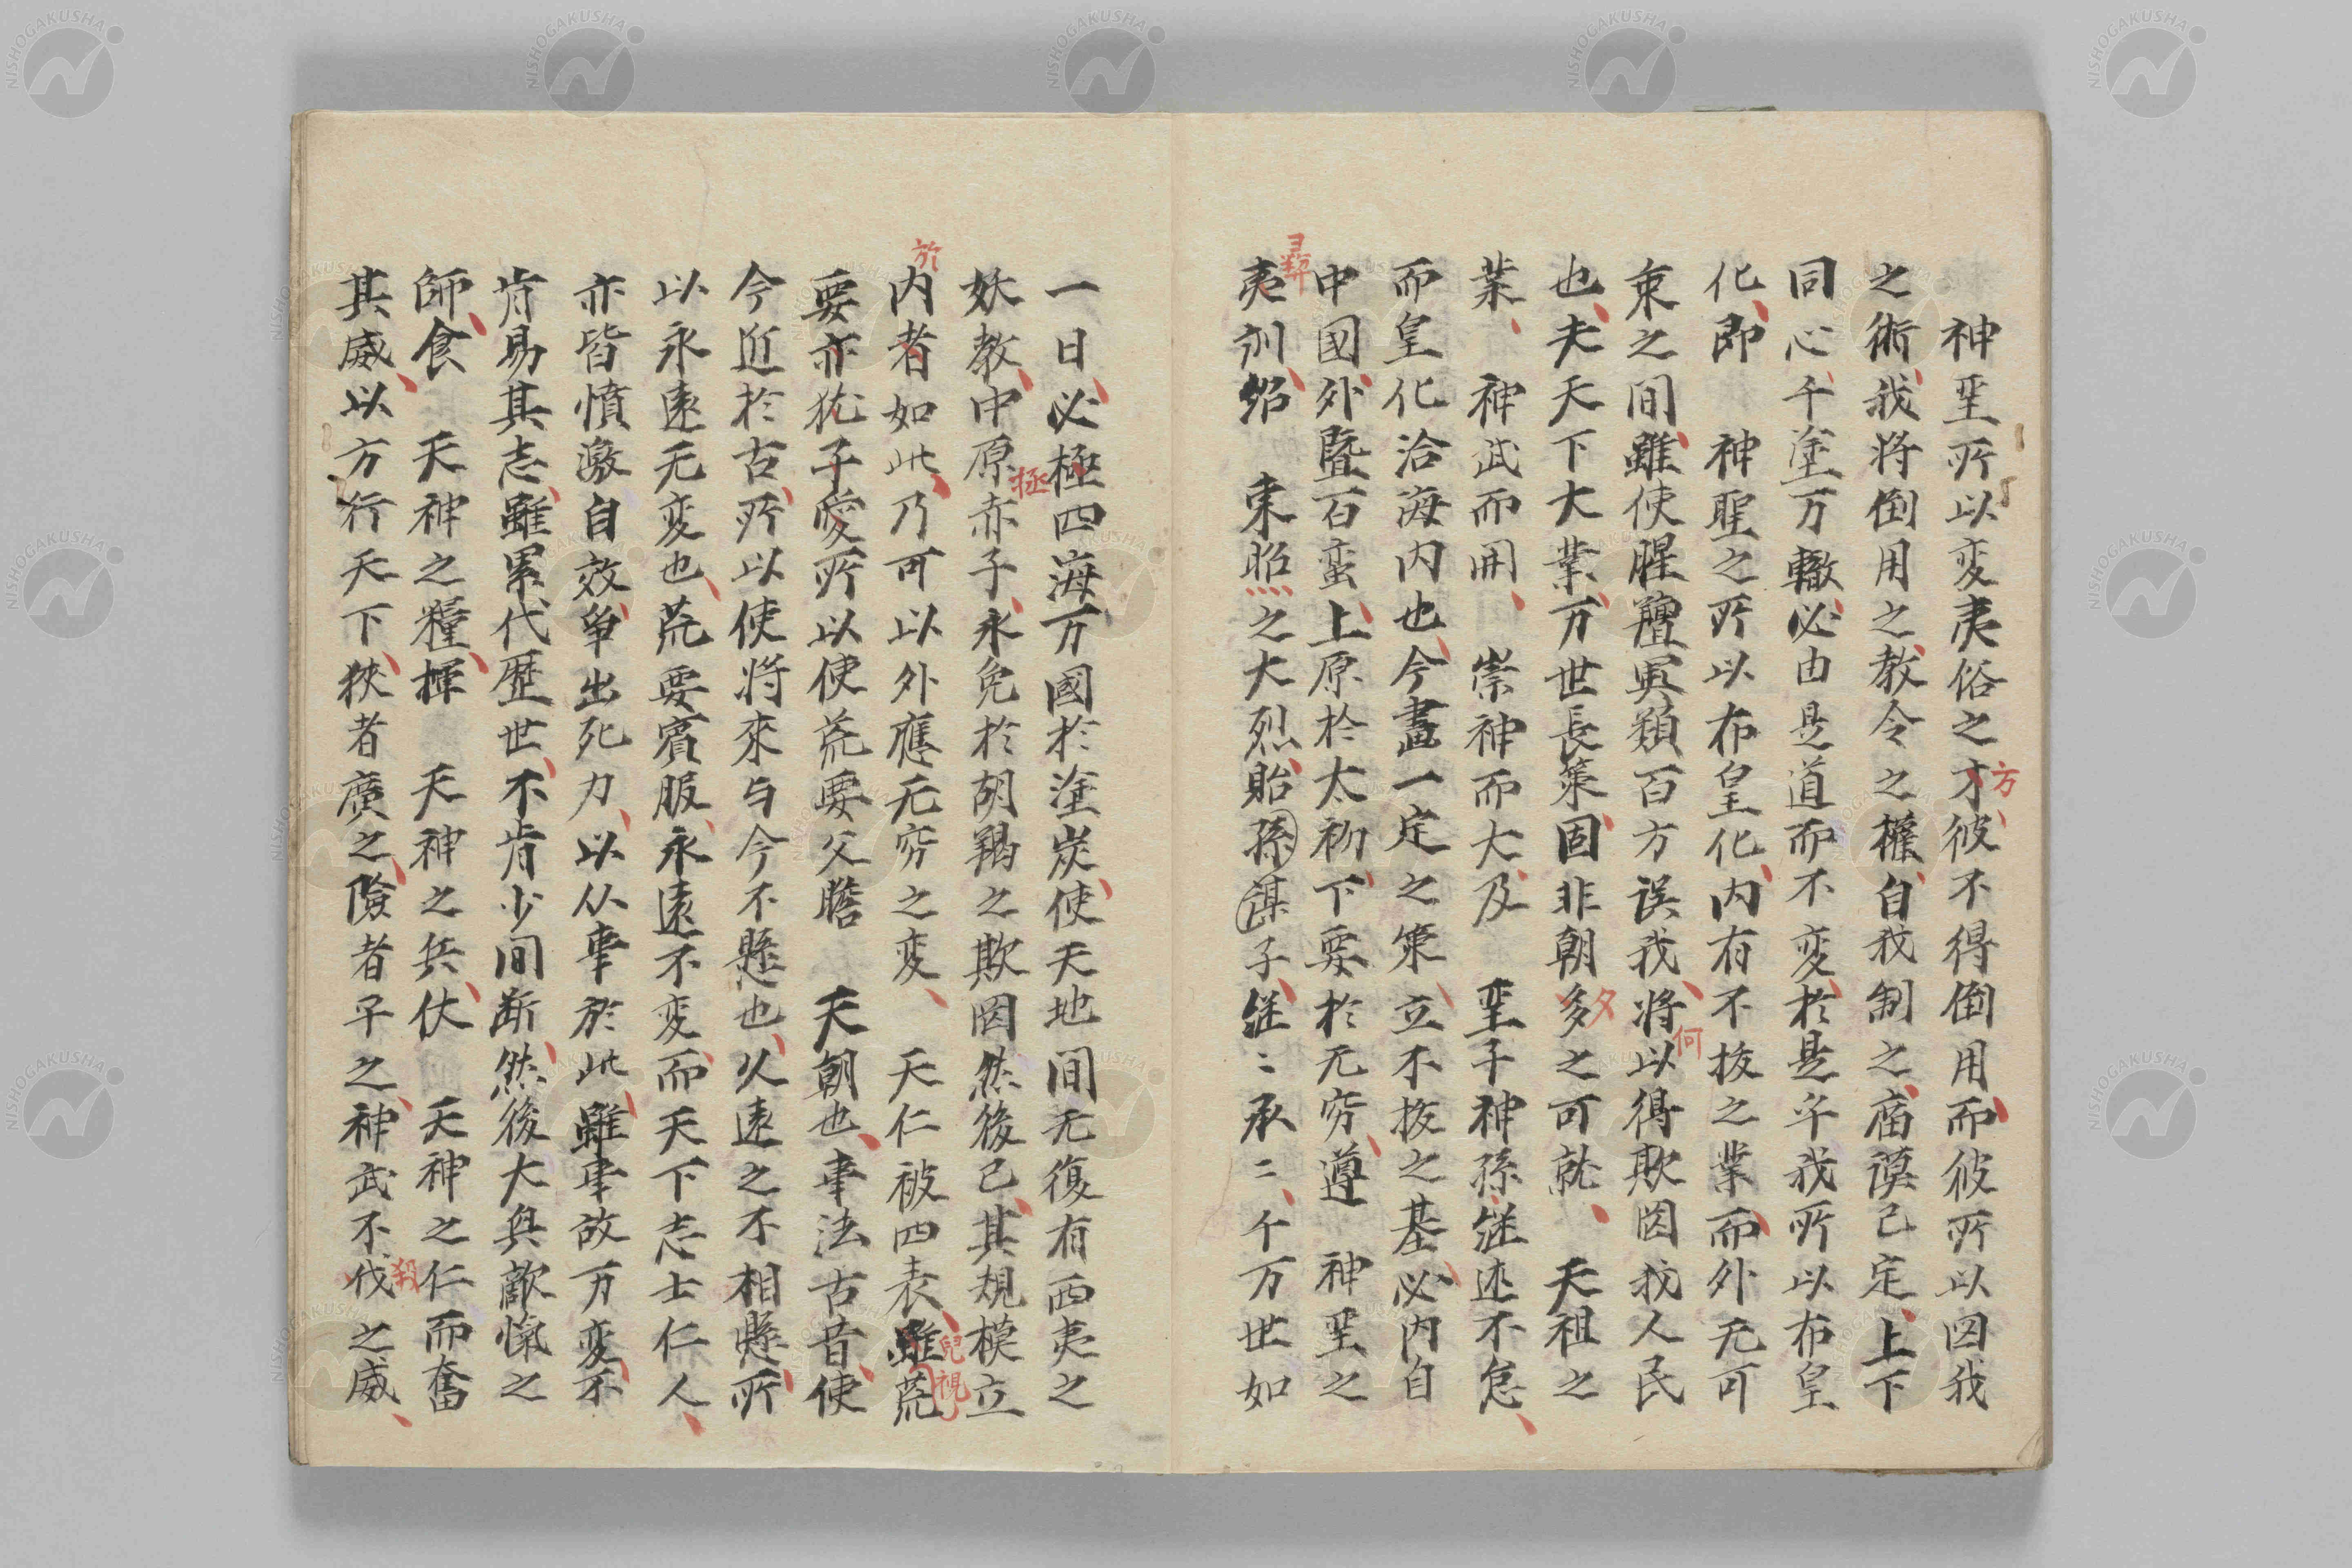 神聖所以変夷俗之才方彼不得倒用而彼所以図我
之術我将倒用之教令之権自我制之庿謨已定上下
同心千塗万轍必由是道而不変於是乎我所以布皇
化即 神聖之所以布皇化内有不抜之業而外无可
乗之間雖使腥羶異類百方誤我将何以得欺罔我人民
也夫天下大業万世長策固非朝多夕之可就 天祖之
業 神武而開 崇神而大及 聖子神孫継述不怠
而皇化洽海内也今畫一定之策立不抜之基必内自
中國外暨百蛮上原於太初下要於无窮遵 神聖之
夷彛訓紹 東照之大烈貽孫謀子継〻承〻千万世如
一日必極四海万國於塗炭使天地間无復有西夷之
妖教中原赤子永免於胡羯之欺罔然後已其規模立
於内者如此乃可以外應无窮之変 天仁被四表雖荒
要亦犹子愛所以使荒要父瞻 天朝也事法古昔使
今近於古所以使將來与今不懸也久遠之不相懸所
以永遠无変也荒要賓服永遠不変而天下志士仁人
亦皆憤激自效争出死力以从事於此雖事故万変不
肯易其志雖累代歴世不肯少间断然後大興敵愾之
師食 天神之糧揮 天神之兵仗 天神之仁而奮
其威以方行天下狹者廣之險者平之神武不伐殺之威
極
兒視
NISHOGAKUSHA